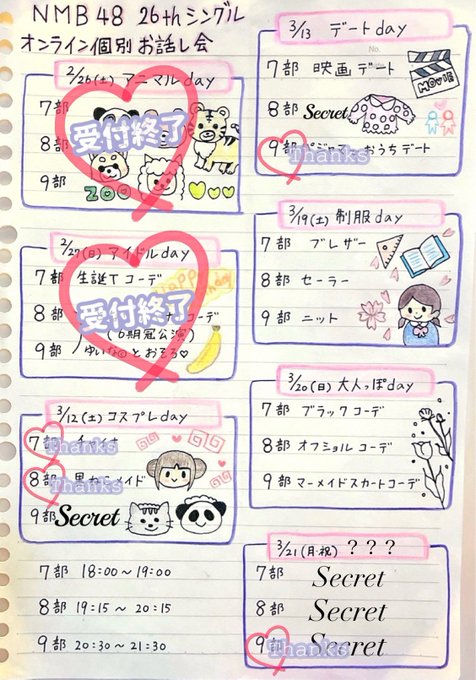 NMB48 26thシングル
オンライン個別お話し会
2/26(土) アニマルday
7部
8部
9部
受付終了
ZOO
2/27(日) アイドルday
7部 生誕Tコーデ
8部 コーデ
(6期冠公演)
9部 ゆいな とおそろ♡
受付終了
3/12(土) コスプレday
7部 チャイナ
Thanks
8部 黒ねこメイド
Thanks
9部 Secret
7部 18:00~19:00
8部 19:15~20:15
9部 20:30~21:30
3/13 デートday
No.
7部 映画デート
MOVIE
8部 Secret
9部 パジャマ おうちデート
Thanks
3/19(土) 制服day
7部 ブレザー
8部 セーラー
9部 ニット
3/20(日) 大人っぽday
7部 ブラックコーデ
8部 オフショルコーデ
9部 マーメイドスカートコーデ
3/21(月·祝) ???
7部 Secret
8部 Secret
9部 Secret
Thanks